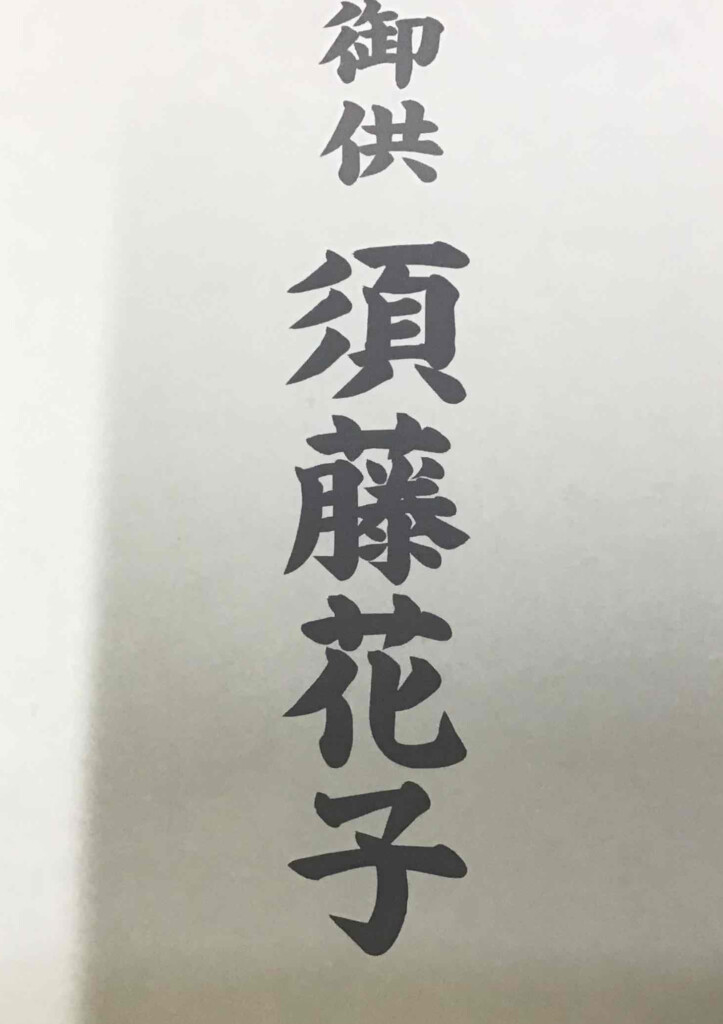 御供
須藤花子